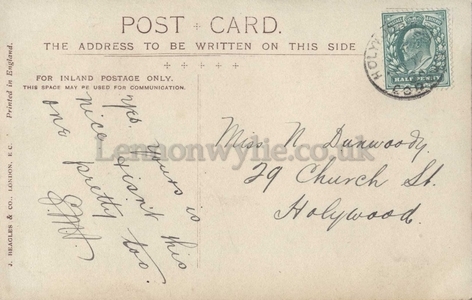 POST CARD.
THE ADDRESS TO BE WRITTEN ON THIS SIDE
FOR INLAND POSTAGE ONLY.
THIS SPACE MAY BE USED FOR COMMUNICATION.
Yes, yours is
nice, isn't this
one pretty too.
E.M.
Miss N Dunwoody.
29 Church St.
Holywood.
J. BEAGLES & CO., LONDON, E.C.
Printed in England.
HALF PENNY
HOLYW
Lennonwylie.co.uk